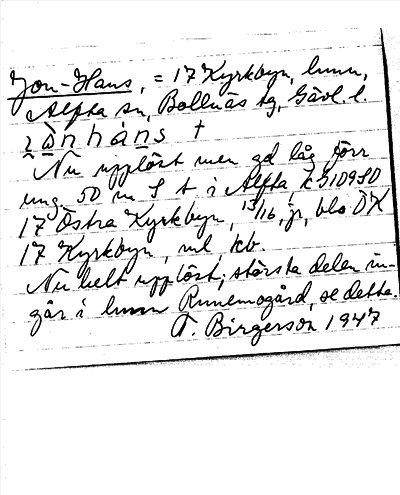 Jon-Hans, = 17 Kyrkbyn, hmn,
Alfta sn, Bollnäs tg, Gävl. l.
hàns †
Nu upplöst men gd låg förr
ung. 50 m S t i Alfta
17 Östra Kyrkbyn, 13/16, jr, blo ÖK
17 Kyrkbyn, ml, kb.
Nu helt upplöst; största delen in-
går i hmn Runemogård, se detta.
T. Birgerson 1947